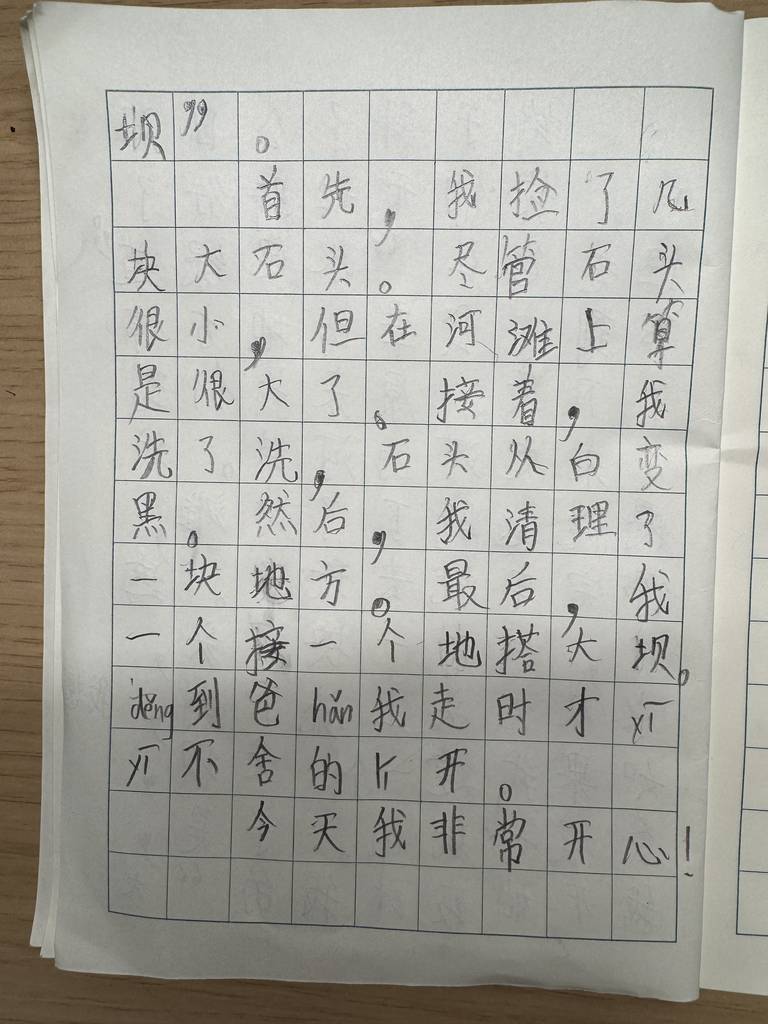 坝”。
首先，我捡了几
块大石头。尽管石头
很小，但在河滩上算
是很大了。接着，我
洗了洗，石头从白变
黑。然后，我清理了
一块地方。最后，我
一个接一个地搭大坝。
děng到爸hǎn我走时才yī
yī不舍的li开。
今天我非常开心！